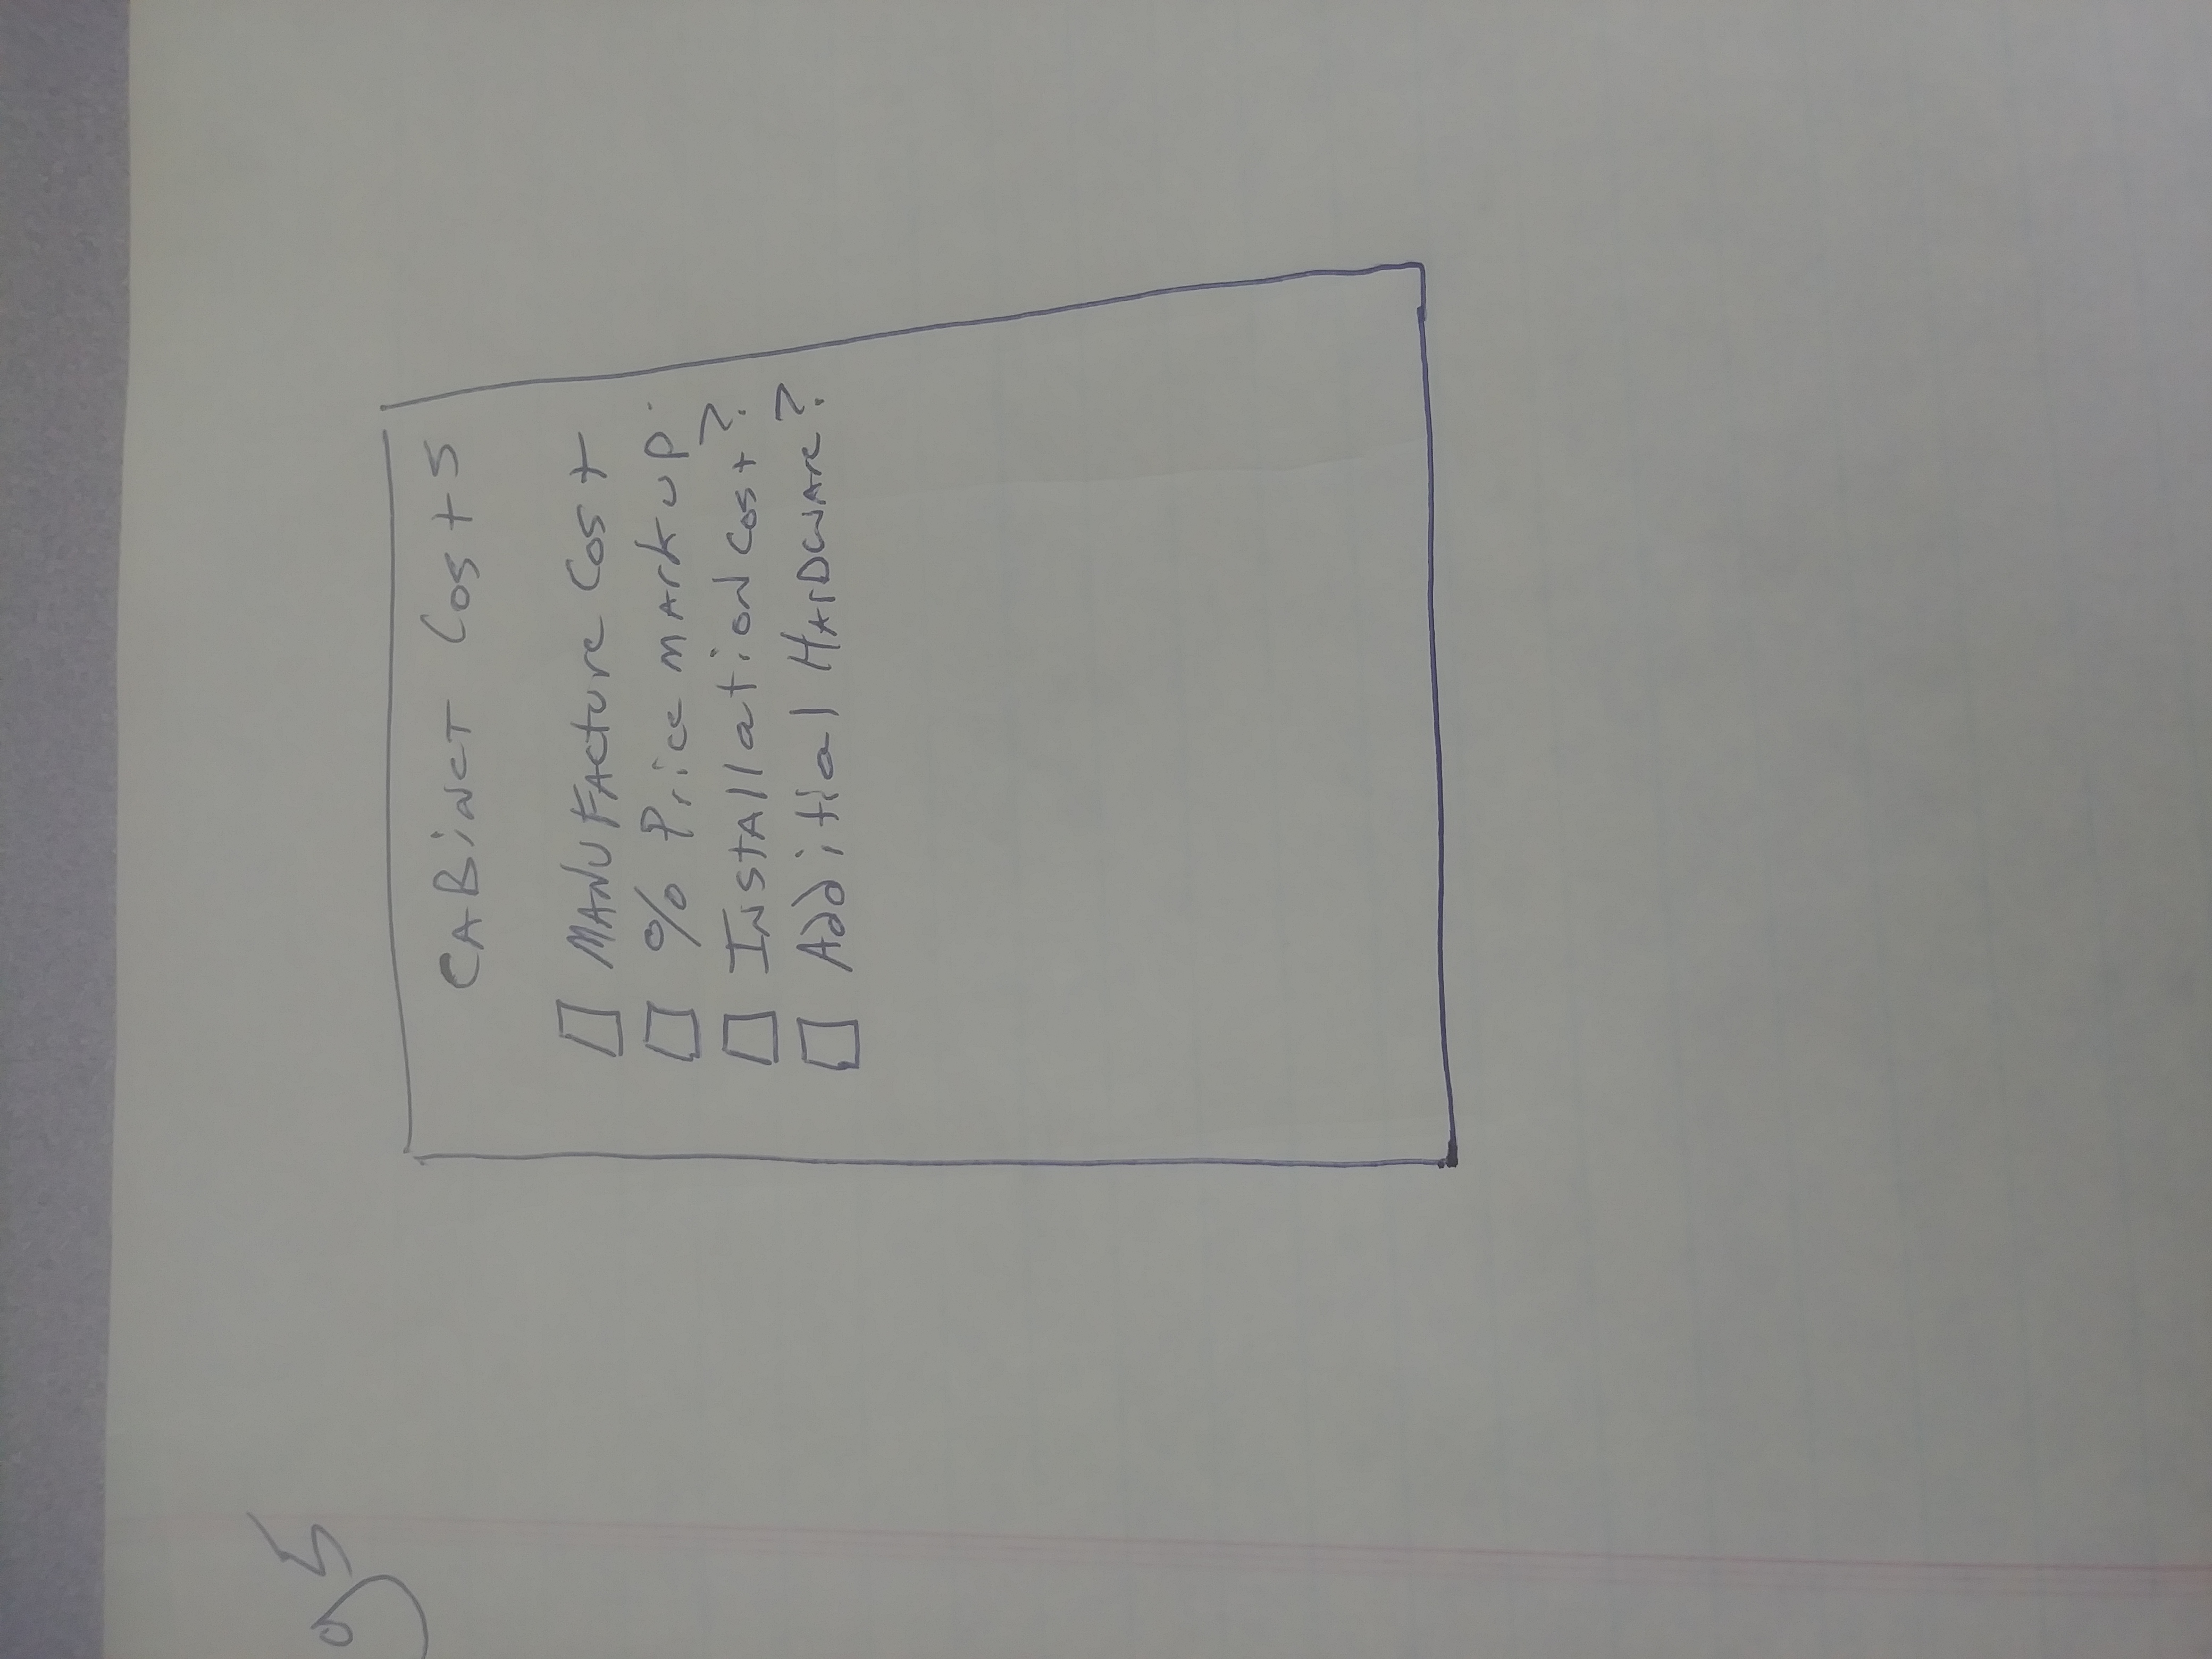 g5
CABiNET Costs
MANUFActure Cost
% Price mArkup
INstAllatiON Cost?
Additial HArDwAre?